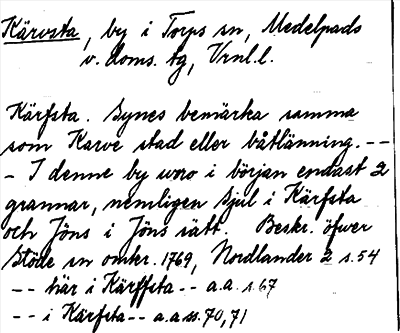 Kärvsta, by i Torps sn, Medelpads
v. doms. tg, Vrnl.l.
Kärfsta. Synes bemärka samma
som Karve stad eller båtlänning. --
- I denne by woro i början endast 2
grannar, nemligen Sjul i Kärfsta
och Jöns i Jöns sätt. Beskr. öfwer
Stöde sn omkr. 1769, Nordlander 2 s. 54
-- här i Kärffsta -- a.a. s. 67
-- i Kärfsta -- a.a. ss. 70, 71